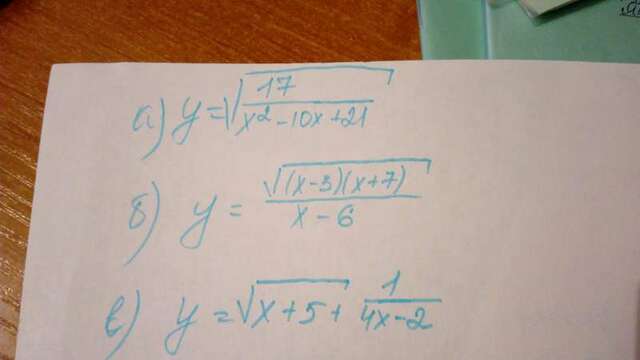 а) y = √(17/(x² - 10x + 21))
б) y = √((x-3)(x+7))/(x - 6)
в) y = √(x+5) + 1/(4x-2)